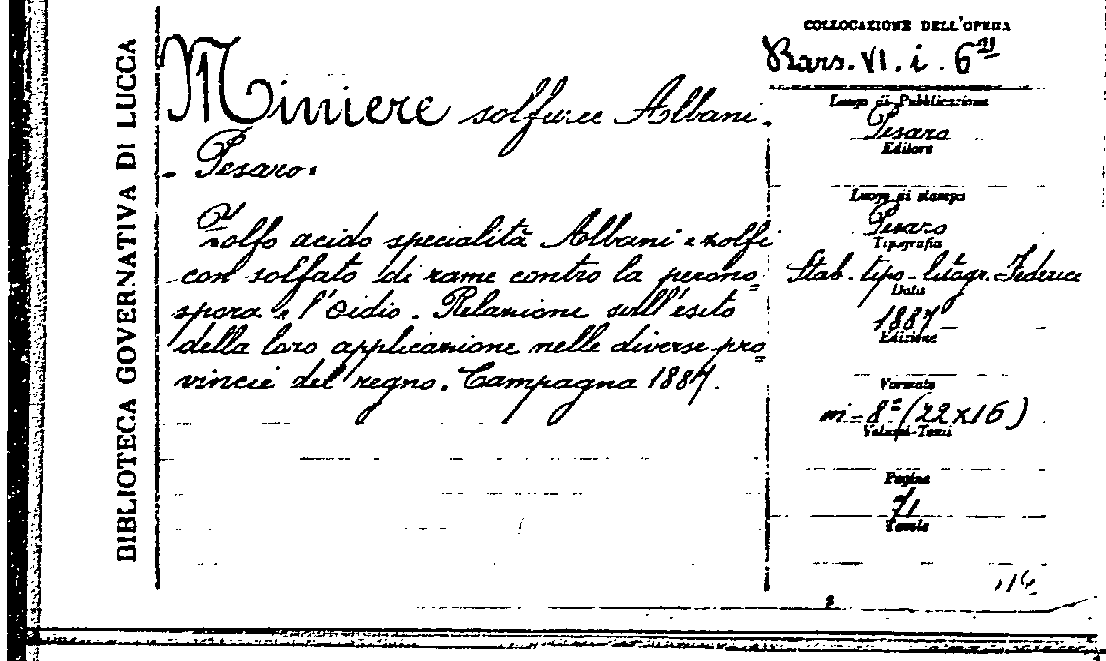 BIBLIOTECA GOVERNATIVA DI LUCCA
Miniere solfuree Albani.
- Pesaro.
Zolfo acido specialità Albani e zolfi
con solfato di rame contro la perono=
spora e l'oidio. Relazione sull'esito
della loro applicazione nelle diverse pro=
vincie del regno. Campagna 1887.
COLLOCAZIONE DELL'OPERA
Bars. VI. i. 6
Luogo di Pubblicazione
Pesaro
Editore
Luogo di stampa
Pesaro
Tipografia
Stab. tipo-litogr. Federici
Data
1887
Edizione
Formato
in-8° (22x16)
Volumi-Tomi
Pagine
71
Tavole